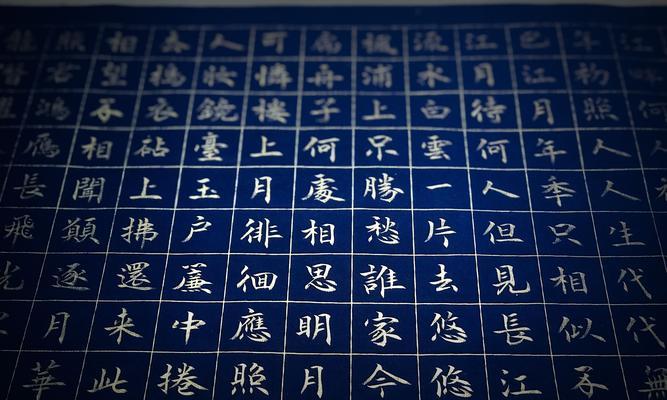 江畔何人
年初照人人生代代無
已江月年年只相似不
江月待何人但見長江
流水白雲一片去悠悠
楓浦上不勝愁誰家今
扁舟子何處相思明月
可憐樓上月徘徊應照
人妝鏡臺玉戶簾中捲
去擣衣砧上拂還来此
相望不相聞顚逐月華
照君鴻雁長飛光
龍